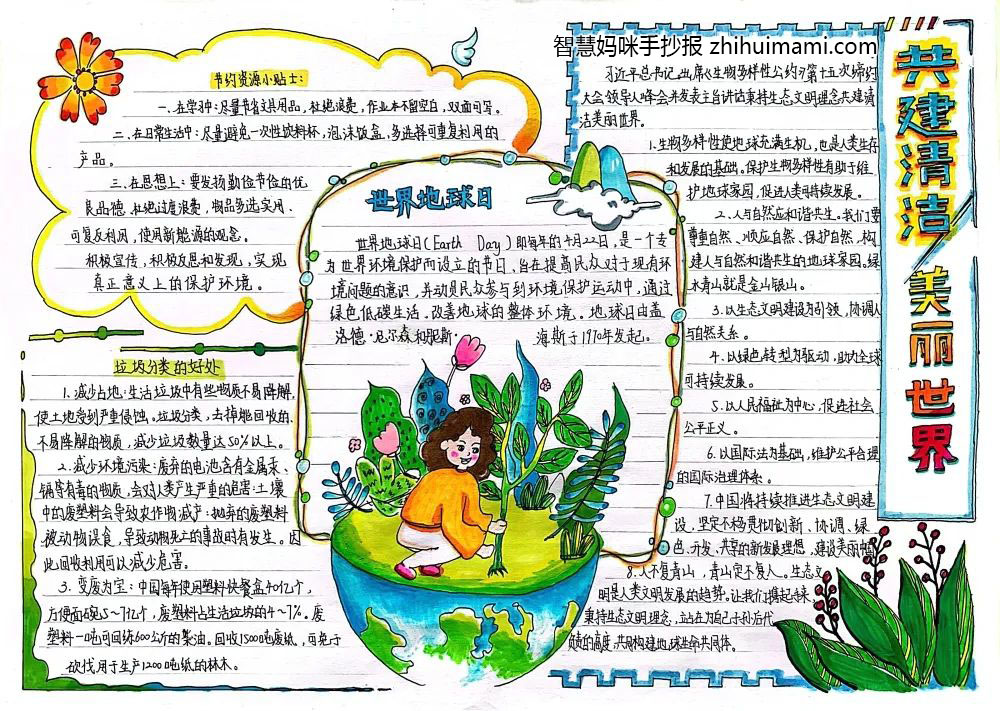 智慧妈咪手抄报 zhihuimami.com
共建清洁美丽世界
节约资源小贴士:
一.在学习中:尽量节省文具用品,杜绝浪费,作业本不留空白,双面可写。
二.在日常生活中:尽量避免一次性饮料杯,泡沫饭盒,多选择可重复利用的
产品。
三.在思想上:要发扬勤俭节俭的优
良品德.杜绝过度浪费,物品多选实用、
可复反利用,使用新能源的观念。
积极宣传,积极反思和发现,实现
真正意义上的保护环境。
世界地球日
世界地球日(Earth Day)即每年的4月22日,是一个专
为世界环境保护而设立的节日,旨在提高民众对于现有环
境问题的意识,并动员民众参与到环境保护运动中,通过
绿色低碳生活,改善地球的整体环境。地球日由盖
洛德·尼尔森和丹尼斯·海斯于1970年发起。
垃圾分类的好处
1.减少占地:生活垃圾中有些物质不易降解,
使土地受到严重侵蚀。垃圾分类,去掉能回收的、
不易降解的物质,减少垃圾数量达50%以上。
2.减少环境污染:废弃的电池含有金属汞、
镉等有毒的物质,会对人类产生严重的危害:土壤
中的废塑料会导致农作物减产:抛弃的废塑料
被动物误食,导致动物死亡的事故时有发生。因
此回收利用可以减少危害。
3.变废为宝:中国每年使用塑料快餐盒40亿个,
方便面碗5~7亿个,废塑料占生活垃圾的4~7%。废
塑料一吨可回炼600公斤的柴油。回收1500吨废纸,可免于
砍伐用于生产1200吨纸的林木。
习近平总书记出席《生物多样性公约》第十五次缔约
大会领导人峰会并发表主旨讲话秉持生态文明理念共建清
洁美丽世界。
1.生物多样性使地球充满生机,也是人类生存
和发展的基础,保护生物多样性有助于维
护地球家园,促进人类可持续发展。
2.人与自然应和谐共生。我们要
尊重自然、顺应自然、保护自然,构
建人与自然和谐共生的地球家园。绿
水青山就是金山银山。
3.以生态文明建设为引领,协调人
与自然关系。
4.以绿色转型为驱动,助力全球
可持续发展。
5.以人民福祉为中心,促进社会
公平正义。
6.以国际法为基础,维护公平合理
的国际治理体系。
7.中国将持续推进生态文明建
设,坚定不移贯彻创新、协调、绿
色、开发、共享的新发展理想,建设美丽中国
8.人不负青山,青山定不负人。生态文
明是人类文明发展的趋势,让我们携起手来,
秉持生态文明理念,站在为自己子孙后代
负责的高度,共同构建地球生命共同体。